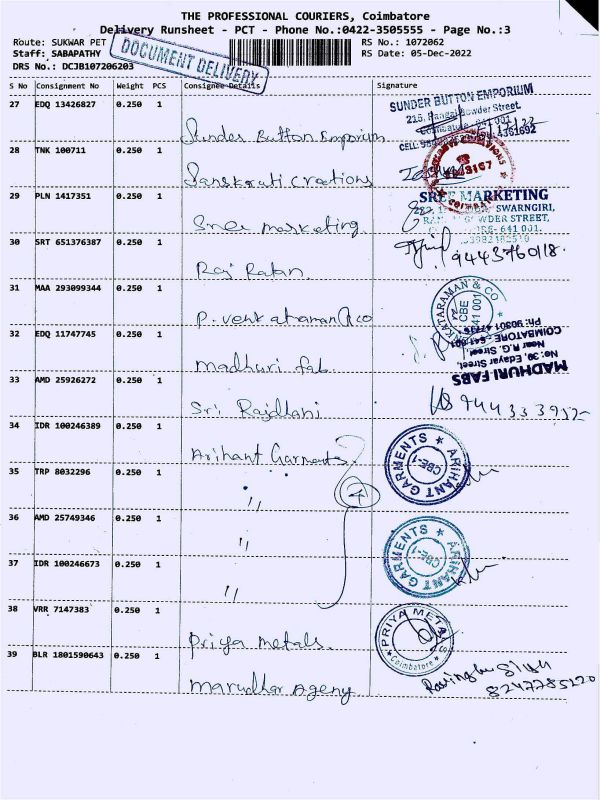 THE PROFESSIONAL COURIERS, Coimbatore
Delivery Runsheet - PCT - Phone No.:0422-3505555 - Page No.:3
Route: SUKWAR PET
RS No.: 1072062
Staff: SABAPATHY
RS Date: 05-Dec-2022
DRS No.: DCJB107206203
DOCUMENT DELIVERY
S No Consignment No Weight PCS Consignee Details Signature
27 EDQ 13426827 0.250 1
Sunder Button Emporium
SUNDER BUTTON EMPORIUM
28 TNK 100711 0.250 1
Sanskruti Creations
29 PLN 1417351 0.250 1
Sree marketing
SREE MARKETING
SWARNGIRI,
30 SRT 651376387 0.250 1
Raj Ratan
9443760118.
31 MAA 293099344 0.250 1
P. venkatraman & co
CBE
641 001
32 EDQ 11747745 0.250 1
madhuri fab
MADHURI FABS
No: 39, Edayar Street,
Near R.G. Street,
COIMBATORE - 641 001
33 AMD 25926272 0.250 1
Sri
34 IDR 100246389 0.250 1
Arihant Garments
ARIHANT GARMENTS
CBE-1
35 TRP 8032296 0.250 1
"
4
36 AMD 25749346 0.250 1
"
ARIHANT GARMENTS
CBE-1
37 IDR 100246673 0.250 1
"
38 VRR 7147383 0.250 1
Priya metals.
PRIYA METALS
Coimbatore
39 BLR 1801590643 0.250 1
marudhar Ageny
8247785220